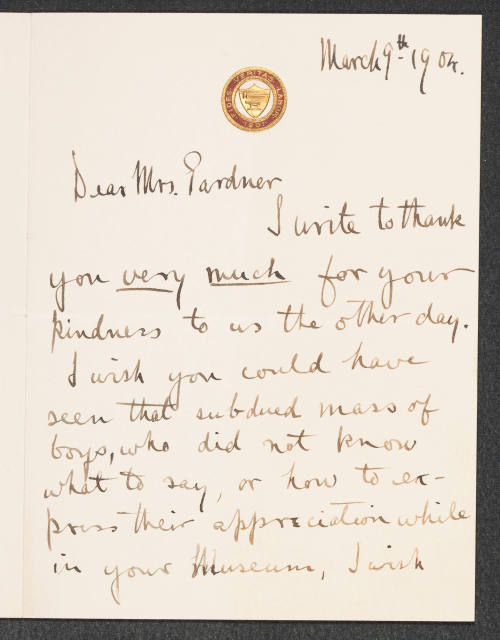 March 9th 1904.
FIDES VERITAS LABOR
Dear Mrs. Gardner
I write to thank
you very much for your
kindness to us the other day.
I wish you could have
seen that subdued mass of
boys, who did not know
what to say, or how to ex-
press their appreciation while
in your Museum, I wish